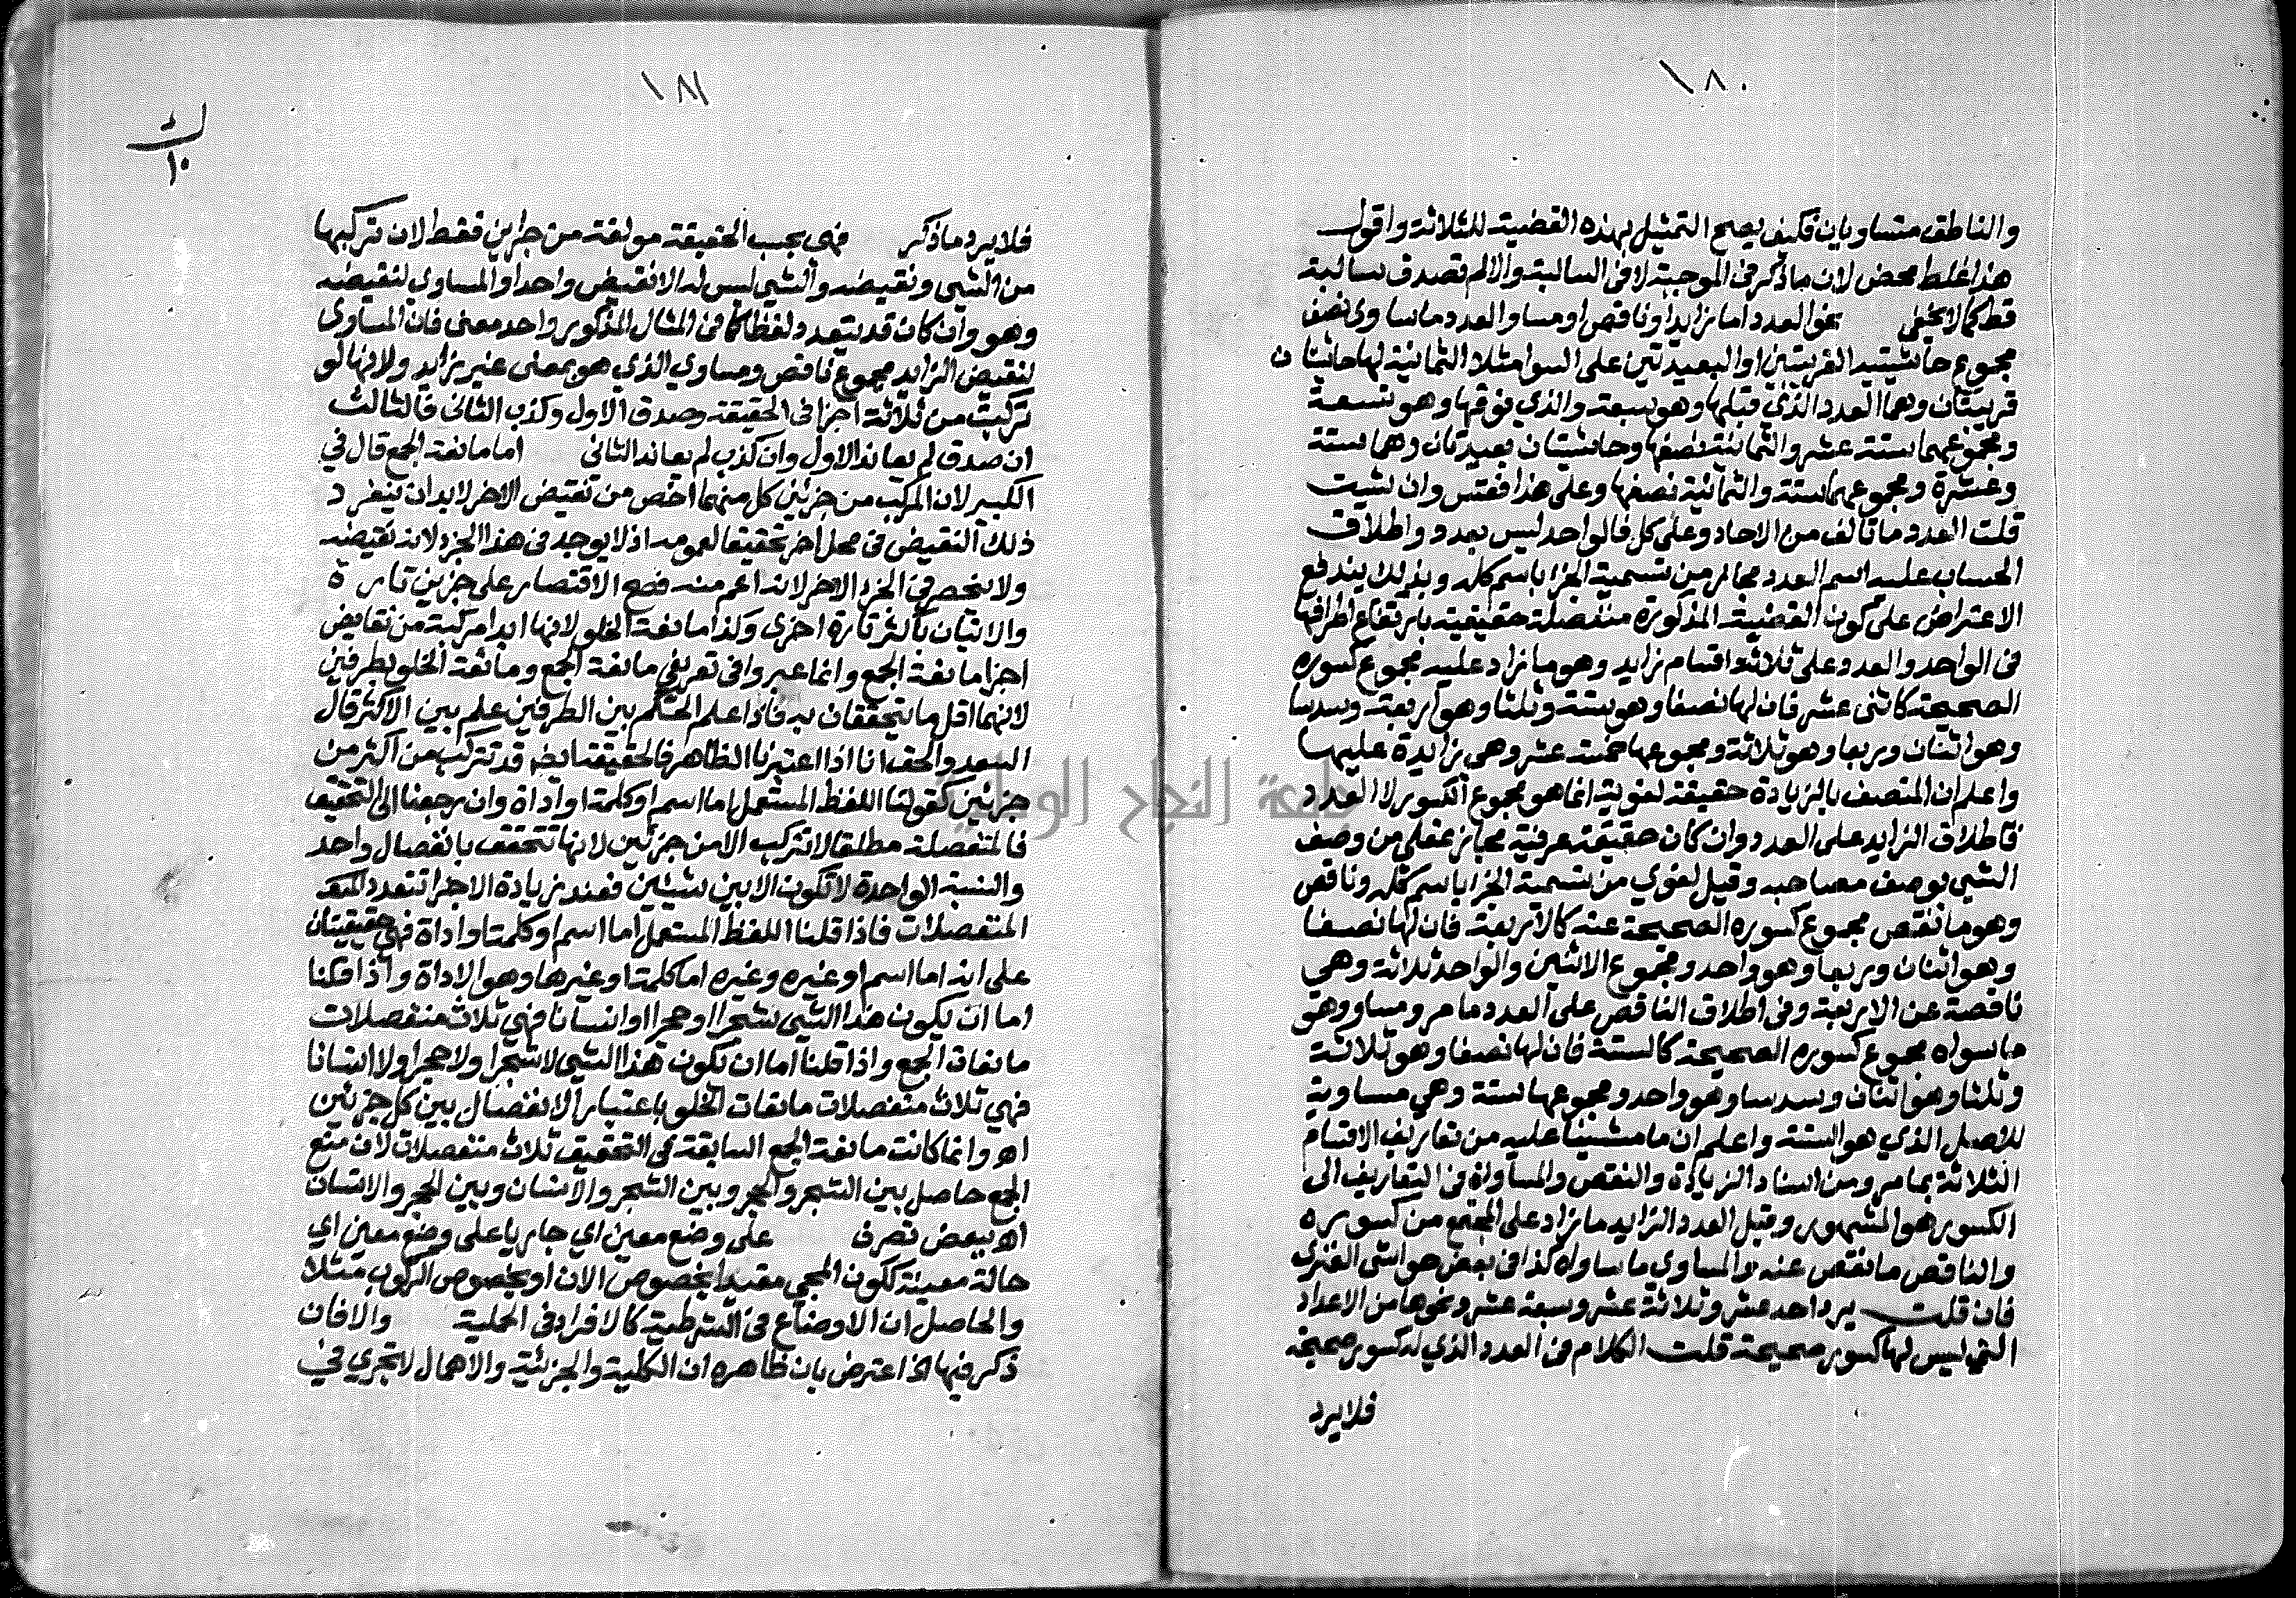 ١٨٠
والناطق متساويان فكيف يصح التمثيل بهذه القضية للثلاثة واقول
هذا غلط محض لان ما ذكر فى الموجبة لا فى السالبة والا لم تصدق سالبة
قط كما لا يخفى نحو العدد اما زايد او ناقص او مساو العدد ما ساوى نصف
مجموع حاشيتيه القريبتين او البعيدتين على السوا مثلا الثمانية لها حاشتان
قريبتان وهما العدد الذي قبلها وهو سبعة والذي فوقها وهو تسعة
ومجموعهما ستة عشر والثمانية نصفها وحاشيتان بعيدتان وهما ستة
وعشرة ومجموعهما ستة والثمانية نصفها وعلى هذا فقس وان شيت
قلت العدد ما تالف من الاحاد وعلى كل فالواحد ليس بعدد واطلاق
الحساب عليه اسم العدد مجاز من تسمية الجزا باسم كله وبذلك يندفع
الاعتراض على كون القضية المذكورة منفصلة حقيقية بارتفاع اطرافها
فى الواحد والعدد على ثلاثة اقسام زايد وهو ما زاد عليه مجموع كسوره
الصحيحة كاثنى عشر فان لها نصفا وهو ستة وثلثا وهو اربعة وسدسا
وهو اثنان وربعا وهو ثلاثة ومجموعها خمسة عشر وهى زايدة عليها
واعلم ان المتصف بالزيادة حقيقة لغوية انما هو مجموع الكسور لا العدد
فاطلاق الزايد على العدد وان كان حقيقة عرفية مجاز عقلى من وصف
الشي بوصف مصاحبه وقيل لغوي من تسمية الجزا باسم كله وناقص
وهو ما نقص مجموع كسوره الصحيحة عنه كالاربعة فان لها نصفا
وهو اثنان وربعا وهو واحد ومجموع الاثنين والواحد ثلاثة وهي
ناقصة عن الاربعة وفى اطلاق الناقص على العدد ما مر ومساو وهو
ما سواه مجموع كسوره الصحيحة كالستة فان لها نصفا وهو ثلاثة
وثلثا وهو اثنان وسدسا وهو واحد ومجموعها ستة وهي مساوية
للاصل الذي هو الستة واعلم ان ما مشينا عليه من تعاريف الاقسام
الثلاثة بما مر ومن اسناد الزيادة والنقص والمساواة فى التعاريف الى
الكسور هو المشهور وقيل العدد الزايد ما زاد على المجتمع من كسوره
والناقص ما نقص عنه والمساوي ما ساواه كذا فى بعض حواشى الغزي
فان قلت يرد احد عشر وثلاثة عشر وسبعة عشر ونحوها من الاعداد
التي ليس لها كسور صحيحة قلت الكلام فى العدد الذي له كسور صحيحة
فلا يرد
١٨١
فلا يرد ما ذكر فهى بحسب الحقيقة مولفة من جزاين فقط لان تركبها
من الشي ونقيضه والشي ليس له الا نقيض واحد او المساوي لنقيضه
وهو وان كان قد يتعدد لفظا كما فى المثال المذكور واحد معنى فان المساوى
لنقيض الزايد مجموع ناقص ومساوي الذي هو بمعنى غير زايد ولانها لو
تركبت من ثلاثة اجزا فى الحقيقة وصدق الاول وكذب الثانى فالثالث
ان صدق لم يعاند الاول وان كذب لم يعاند الثانى اما مانعة الجمع قال في
الكبير لان المركب من جزئين كل منهما اخص من نقيض الاخر لا بد ان ينفرد
ذلك النقيض فى محل اخر تحقيقا لعمومه اذ لا يوجد فى هذا الجزء لانه نقيضه
ولا ينحصر في الجزء الاخر لانه اعم منه فصح الاقتصار على جزئين تارة
والاتيان باكثر تارة اخرى وكذا مانعة الخلو لانها ابدا مركبة من نقايض
اجزا مانعة الجمع وانما عبروا فى تعريفي مانعة الجمع ومانعة الخلو بطرفين
لانهما اقل ما يتحققان به فاذا علم الحكم بين الطرفين علم بين الاكثر قال
السعد والحق انا اذا اعتبرنا الظاهر فالحقيقة ايضا قد تتركب من اكثر من
جزئين كقولنا اللفظ المستعمل اما اسم او كلمة او اداة وان رجعنا الى التحقيق
فالمنفصلة مطلقا لا تتركب الا من جزئين لانها تتحقق بانفصال واحد
والنسبة الواحدة لا تكون الا بين شيئين فعند زيادة الاجزا تتعدد
المنفصلات فاذا قلنا اللفظ المستعمل اما اسم او كلمة او اداة فهى حقيقيتان
على انه اما اسم او غيره وغيره اما كلمة او غيرها وهو الاداة واذا قلنا
اما ان يكون هذا الشي شجرا او حجرا او انسانا فهي ثلاث منفصلات
مانعات الجمع واذا قلنا اما ان يكون هذا الشي لا شجرا ولا حجرا ولا انسانا
فهي ثلاث منفصلات مانعات الخلو باعتبار الانفصال بين كل جزئين
اه وانما كانت مانعة الجمع السابقة فى التحقيق ثلاث منفصلات لان منع
الجمع حاصل بين الشجر والحجر وبين الشجر والانسان وبين الحجر والانسان
اه ببعض تصرف على وضع معين اي جاريا على وضع معين اي
حالة معينة ككون المجي مقيدا بخصوص الان او بخصوص الركوب مثلا
والحاصل ان الاوضاع فى الشرطية كالافراد فى الحملية والا فان
ذكر فيها اذ اعترض بان ظاهره ان الكلية والجزئية والاهمال لا تجري في
جامعة النجاح الوطنية